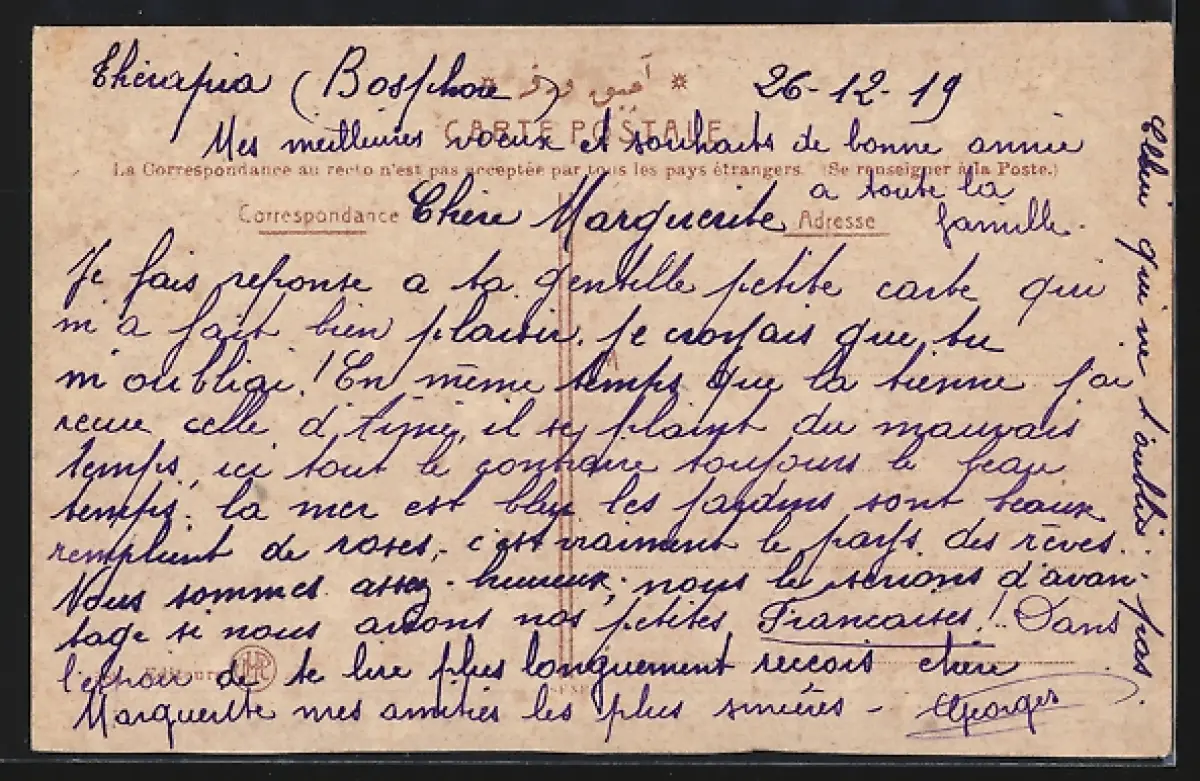 Thérapia (Bosphore) 26-12-19
CARTE POSTALE
Mes meilleures voeux et souhaits de bonne année
La Correspondance au recto n'est pas acceptée par tous les pays étrangers. (Se renseigner à la Poste.)
a toute la
famille.
Correspondance
Chère Marguerite
Adresse
Je fais reponse a ta gentille petite carte qui
m'a fait bien plaisir. je croyais que tu
m'oubliai! En même temps que la tienne j'ai
recue celle d' il se plaint du mauvais
temps, ici tout le contraire toujours le beau
temps. la mer est bleu les jardins sont beaux
remplient de roses, c'est vraiment le pays des rêves.
Nous sommes assez heureux, nous le serions d'avan-
tage si nous avions nos petites Francaises! Dans
l'espoir de te lire plus longuement reccois chère
Editeur
Marguerite mes amitiés les plus sincères -
Georges
qui ne t'oublie pas.